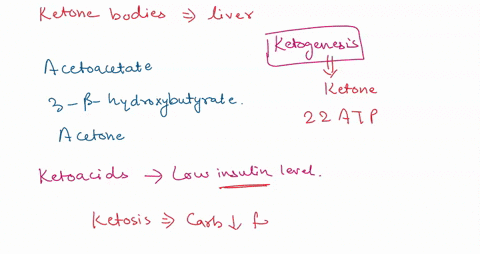 Ketone bodies ⇒ liver
Ketogenesis
⇓
Ketone
22 ATP
Acetoacetate
3-β-hydroxybutyrate.
Acetone
Ketoacids → Low insulin level.
Ketosis ⇒ Carb ↓ f